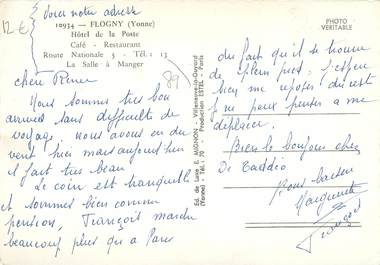 12 €
Voici notre adresse
10934 — FLOGNY (Yonne)
Hôtel de la Poste
Café - Restaurant
Route Nationale 5 - Tél. : 13
La Salle à Manger
89
chère Renée
Nous sommes très bien
arrivés sans difficulté de
voyage, nous avons eu du
vent hier mais aujourd'hui
il fait très beau
Le coin est tranquille
et sommes bien comme
pension, François marche
beaucoup plus qu'à Paris
Ed. de Luxe E. MIGNON - Villeneuve-la-Guyard
(Yonne) - Tél. : 70 - Production ESTEL - Paris
PHOTO
VERITABLE
du fait qu'il se trouve
de plein pied, j'espère
bien me reposer du reste
je ne peux penser a me
déplacer.
Bien le bonjour chez
De Baddio
Bons baisers
Marguerite
François